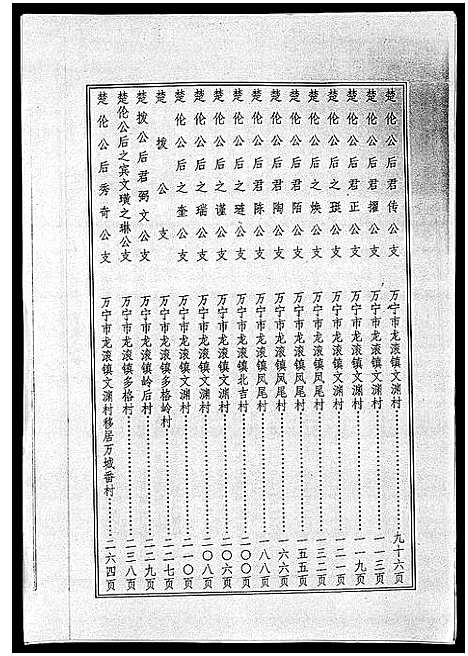 楚伦公后君传公支 万宁市龙滚镇文渊村………九十六页
楚伦公后君擢公支 万宁市龙滚镇文渊村………一一三页
楚伦公后君正公支 万宁市龙滚镇文渊村………一一九页
楚伦公后之珽公支 万宁市龙滚镇文渊村………一二一页
楚伦公后之焕公支 万宁市龙滚镇凤尾村………一三二页
楚伦公后君陌公支 万宁市龙滚镇凤尾村………一五五页
楚伦公后君陶公支 万宁市龙滚镇凤尾村………一六六页
楚伦公后君陈公支 万宁市龙滚镇凤尾村………一八八页
楚伦公后之琏公支 万宁市龙滚镇北吉村………二〇〇页
楚伦公后之谨公支 万宁市龙滚镇文渊村………二〇六页
楚伦公后之瑞公支 万宁市龙滚镇文渊村………二〇八页
楚伦公后之奎公支 万宁市龙滚镇文渊村………二一〇页
楚拨公支 万宁市龙滚镇多格岭村………二二七页
楚拨公后君弼文公支 万宁市龙滚镇岭后村………二二九页
楚伦公后之宾文璜之琳公支 万宁市龙滚镇多格村………二三八页
楚伦公后秀奇公支 万宁市龙滚镇文渊村移居万城番村………二六四页